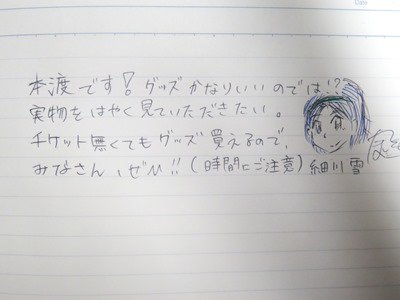 本渡です！グッズかなりいいのでは!?
実物をはやく見ていただきたい。
チケット無くてもグッズ買えるので、
みなさん、ぜひ!!(時間にご注意)細川雪
Date